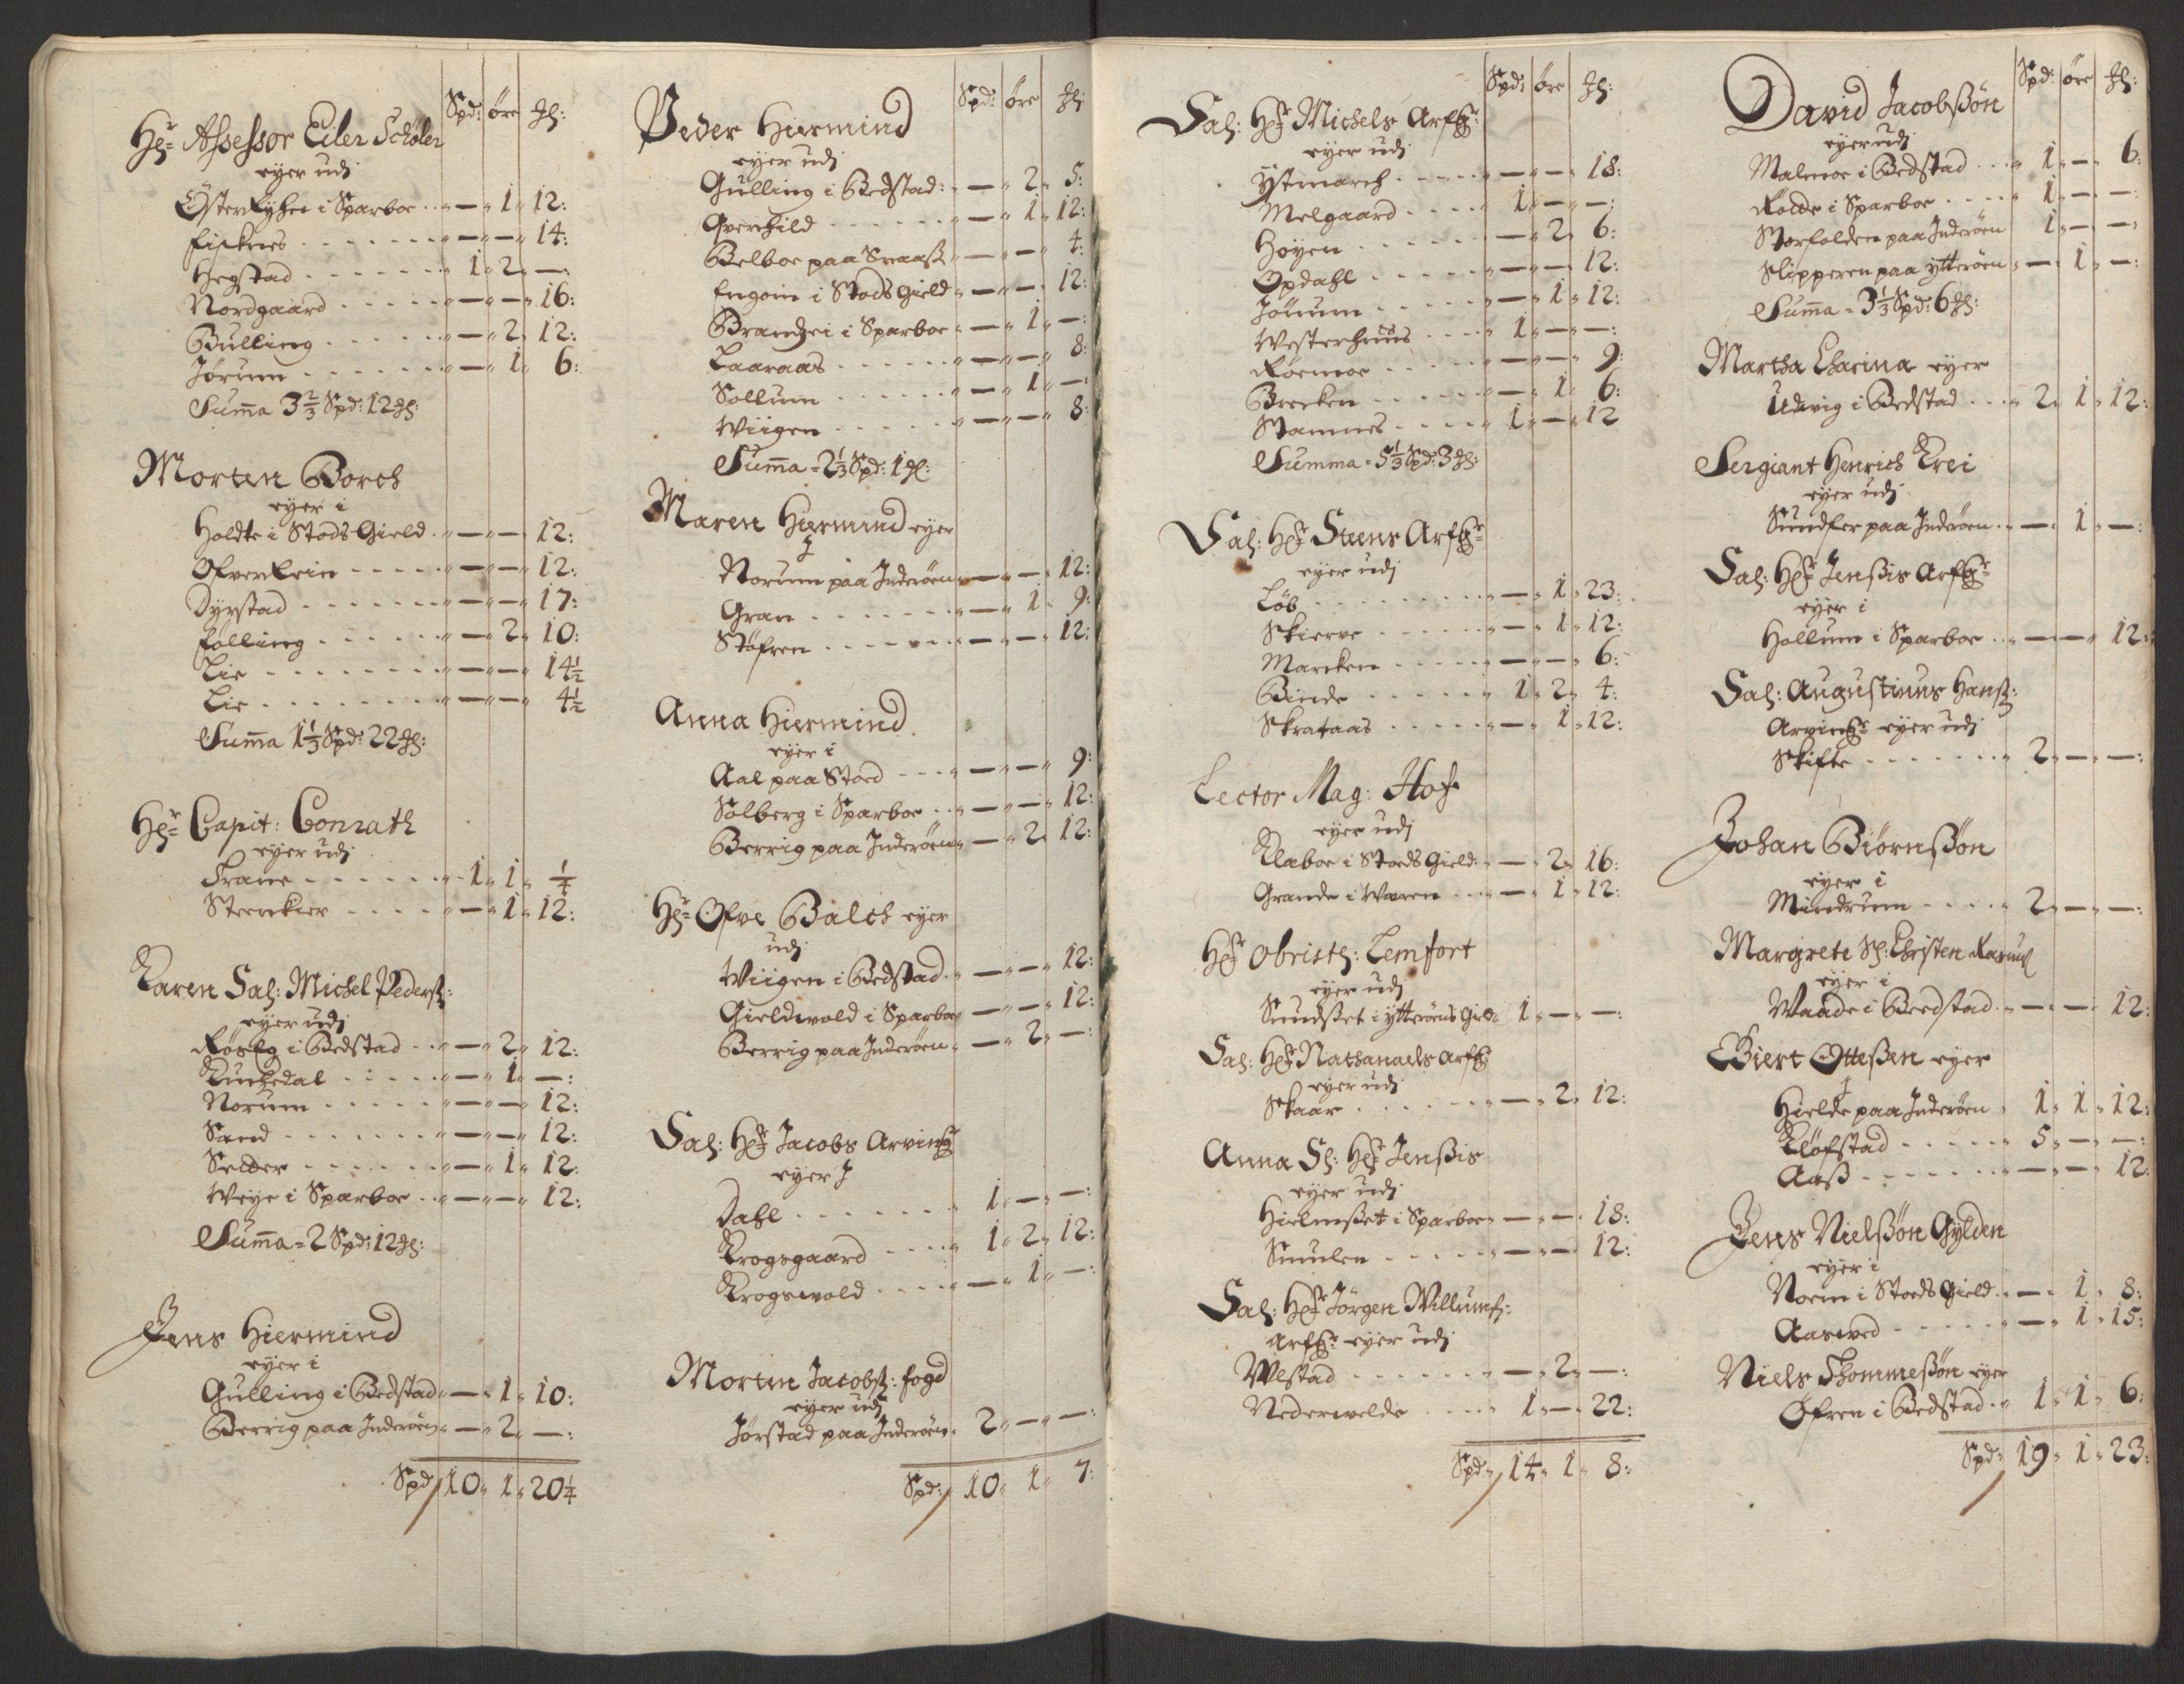 Spd: øre ₰:
Hr: Assessor Eiler Schøler
eyer udj
Østerkyhen i Sparboe - 1 12:
Fisknes - - 14:
Hegstad 1 2 -:
Nordgaard - - 16:
Bulling - 2 12:
Jørum - 1 6:
Summa 3 2/3 Spd: 12 ₰:
Morten Borch
eyer i
Holdte i Stods Gield - - 12:
Ofverlein - - 12:
Dyrstad - - 17:
Følling - 2 10:
Lie - - 14 1/2
Lie - - 4 1/2
Summa 1 1/3 Spd: 22 ₰:
Hr: Capit: Conrath
eyer udj
Krane 1 1 1/4
Steenkier - 1 12:
Karen Sal: Michel Peders:
eyer udj
Røseg i Bedstad - 2 12:
Kirchedal - 1 -:
Norum - - 12:
Sand - - 12:
Selder - 1 12:
Weye i Sparboe - - 12:
Summa = 2 Spd: 12 ₰:
Jens Hiermind
eyer i
Gulling i Bedstad - 1 10:
Berrig paa Inderøen - 2 -:
Spd 10 1 20 1/4
Spd: øre ₰:
Peder Hiermind
eyer udj
Gulling i Bedstad: - 2 5:
Qverchild - 1 12:
Belboe paa Snaass - - 4:
Engoin i Stods Gield - - 12:
Brandzei i Sparboe - 1 -:
Laaraas - - 8:
Sollum - 1 -:
Wiigen - - 8:
Summa = 2 1/3 Spd: 1 ₰:
Maren Hiermind eyer
J
Norum paa Inderøen - - 12:
Gran - 1 9:
Støfren - - 12:
Anna Hiermind
eyer i
Aal paa Stord - - 9:
Solberg i Sparboe - - 12:
Berrig paa Inderøen - 2 12:
Hr: Ofve Balch eyer
udj
Wiigen i Bedstad - - 12:
Gieldwold i Sparboe - - 12:
Berrig paa Inderøen - 2 -:
Sal: Hr: Jacobs Arving:
eyer J
Dahl 1 - -:
Krogsgaard 1 2 12:
Krogswold - 1 -:
Morten Jacobs: fogd
eyer udj
Jørstad paa Inderøen 2 - -:
Spd: 10 1 7:
Spd: øre ₰:
Sal: Hr: Michels Arfg:
eyer udj
Ystmarch - - 18:
Melgaard 1 - -:
Høyen - 2 6:
Opdahl - - 12:
Jørum - 1 12:
Westerhuus 1 - -:
Røemoe - - 9:
Brecken - 1 6:
Stamnes 1 - 12
Summa = 5 1/3 Spd: 3 ₰:
Sal: Hr: Steens Arfg:
eyer udj
Løb - 1 23:
Skierve - 1 12:
Marcken - - 6:
Binde 1 2 4:
Skrataas - 1 12:
Lector Mag: Hof
eyer udj
Klaboe i Stods Gield - 2 16:
Grande i Waren - 1 12:
Hr: Obristl: Lemfort
eyer udj
Sundset i ytterøens Gield 1 - -:
Sal: Hr: Nathanaels Arfg:
eyer udj
Skaar - 2 12:
Anna Sl: Hr: Jenssis
eyer udj
Hielmset i Sparboe - - 18:
Smulen - - 12:
Sal: Hr: Jørgen Willums:
Arfg: eyer udj
Wlstad - 2 -:
Nederwelde 1 - 22:
Spd: 14 1 8:
Spd: øre ₰:
David Jacobssøn
eyer udj
Malmoe i Bedstad 1 - 6:
Rolde i Sparboe 1 - -:
Storfolden paa Inderøen 1 - -:
Slipperen paa ytterøen - 1 -:
Summa = 3 1/3 Spd: 6 ₰:
Martha Charina eyer
Udvig i Bedstad 2 1 12:
Sergiant Henrich Krei
eyer udj
Sundfer paa Inderøen - 1 -:
Sal: Hr: Jenssis Arfg:
eyer i
Hollum i Sparboe - - 12:
Sal: Augustinus Hans:
Arving: eyer udj
Skifte 2 - -:
Johan Biørnssøn
eyer i
Mindrum 2 - -:
Margrete Sl: Christen
eyer i
Waade i Beedstad - - 12:
Giert Ottessen eyer
J
Hielde paa Inderøen 1 1 12:
Kløfstad 5 - -:
Aass - - 12:
Jens Nielssøn Gylden
eyer i
Noem i Stoeds Gield - 1 8:
Aaswed - 1 15:
Niels Thommessøn eyer
Øfren i Bedstad 1 1 6:
Spd: 19 1 23: